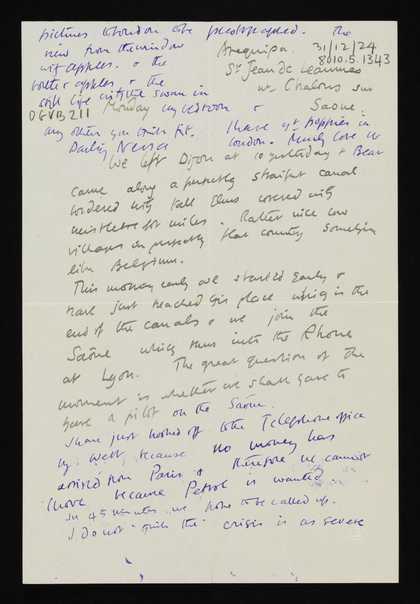 pictures to London to be photographed. The
view from the window
with apples. & the
bottle & apples & the
still life with the swan in
Arequipa. 31/12/24
8010.5.1343
St Jean de Losne
nr Chalons sur
Saône.
DGVB211 Monday my bedroom &
any others you think fit. I have got poppies in
London. Much love to
Darling Nessa
We left Dijon at 10 yesterday & Bear
came along a perfectly straight canal
bordered with tall Elms covered with
mistletoe for miles. Rather nice low
villages in perfectly flat country something
like Belgium.
This morning early we started early &
have just reached this place which is the
end of the canals & we join the
Saône which runs into the Rhone
at Lyon. The great question of the
moment is whether we shall have to
have a pilot on the Saône.
I have just rushed off to the Telephone office
because no money has
arrived from Paris & therefore we cannot
move because Petrol is wanted
In 45 minutes we hope to be called up.
I do not think the crisis is as severe